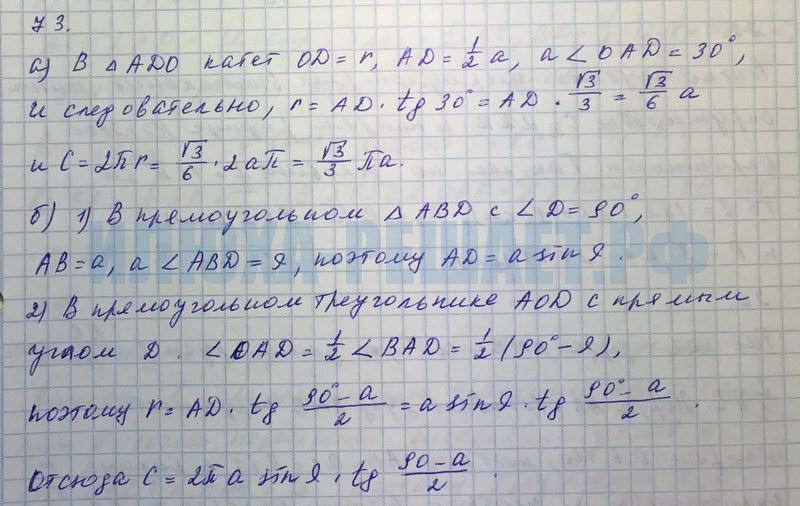 73.
а) В △ADO катет OD = r, AD = 1/2 a, а ∠OAD = 30°,
и следовательно, r = AD · tg 30° = AD · √3/3 = √3/6 a
и C = 2πr = √3/6 · 2aπ = √3/3 πa.
б) 1) В прямоугольном △ABD с ∠D = 90°,
ИЛЮХА-РЕШАЕТ.РФ
AB = a, а ∠ABD = α, поэтому AD = a sin α.
2) В прямоугольном треугольнике AOD с прямым
углом D. ∠OAD = 1/2 ∠BAD = 1/2 (90° - α),
поэтому r = AD · tg (90° - a)/2 = a sin α · tg (90° - a)/2.
Отсюда C = 2πa sin α · tg (90 - a)/2.